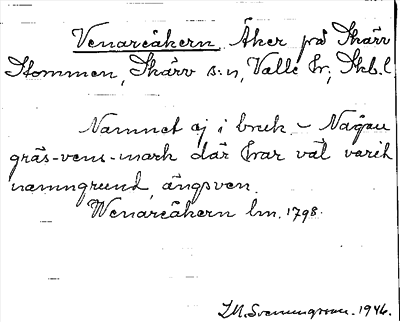 Venareåkern, Åker på Skärv
Stommen, Skärv s:n, Valle hr, Skb.l.
Namnet ej i bruk. – Någon
gräs-vens-mark där har väl varit
namngrund, ängsven.
Wenareåkern lm. 1798.
1946.